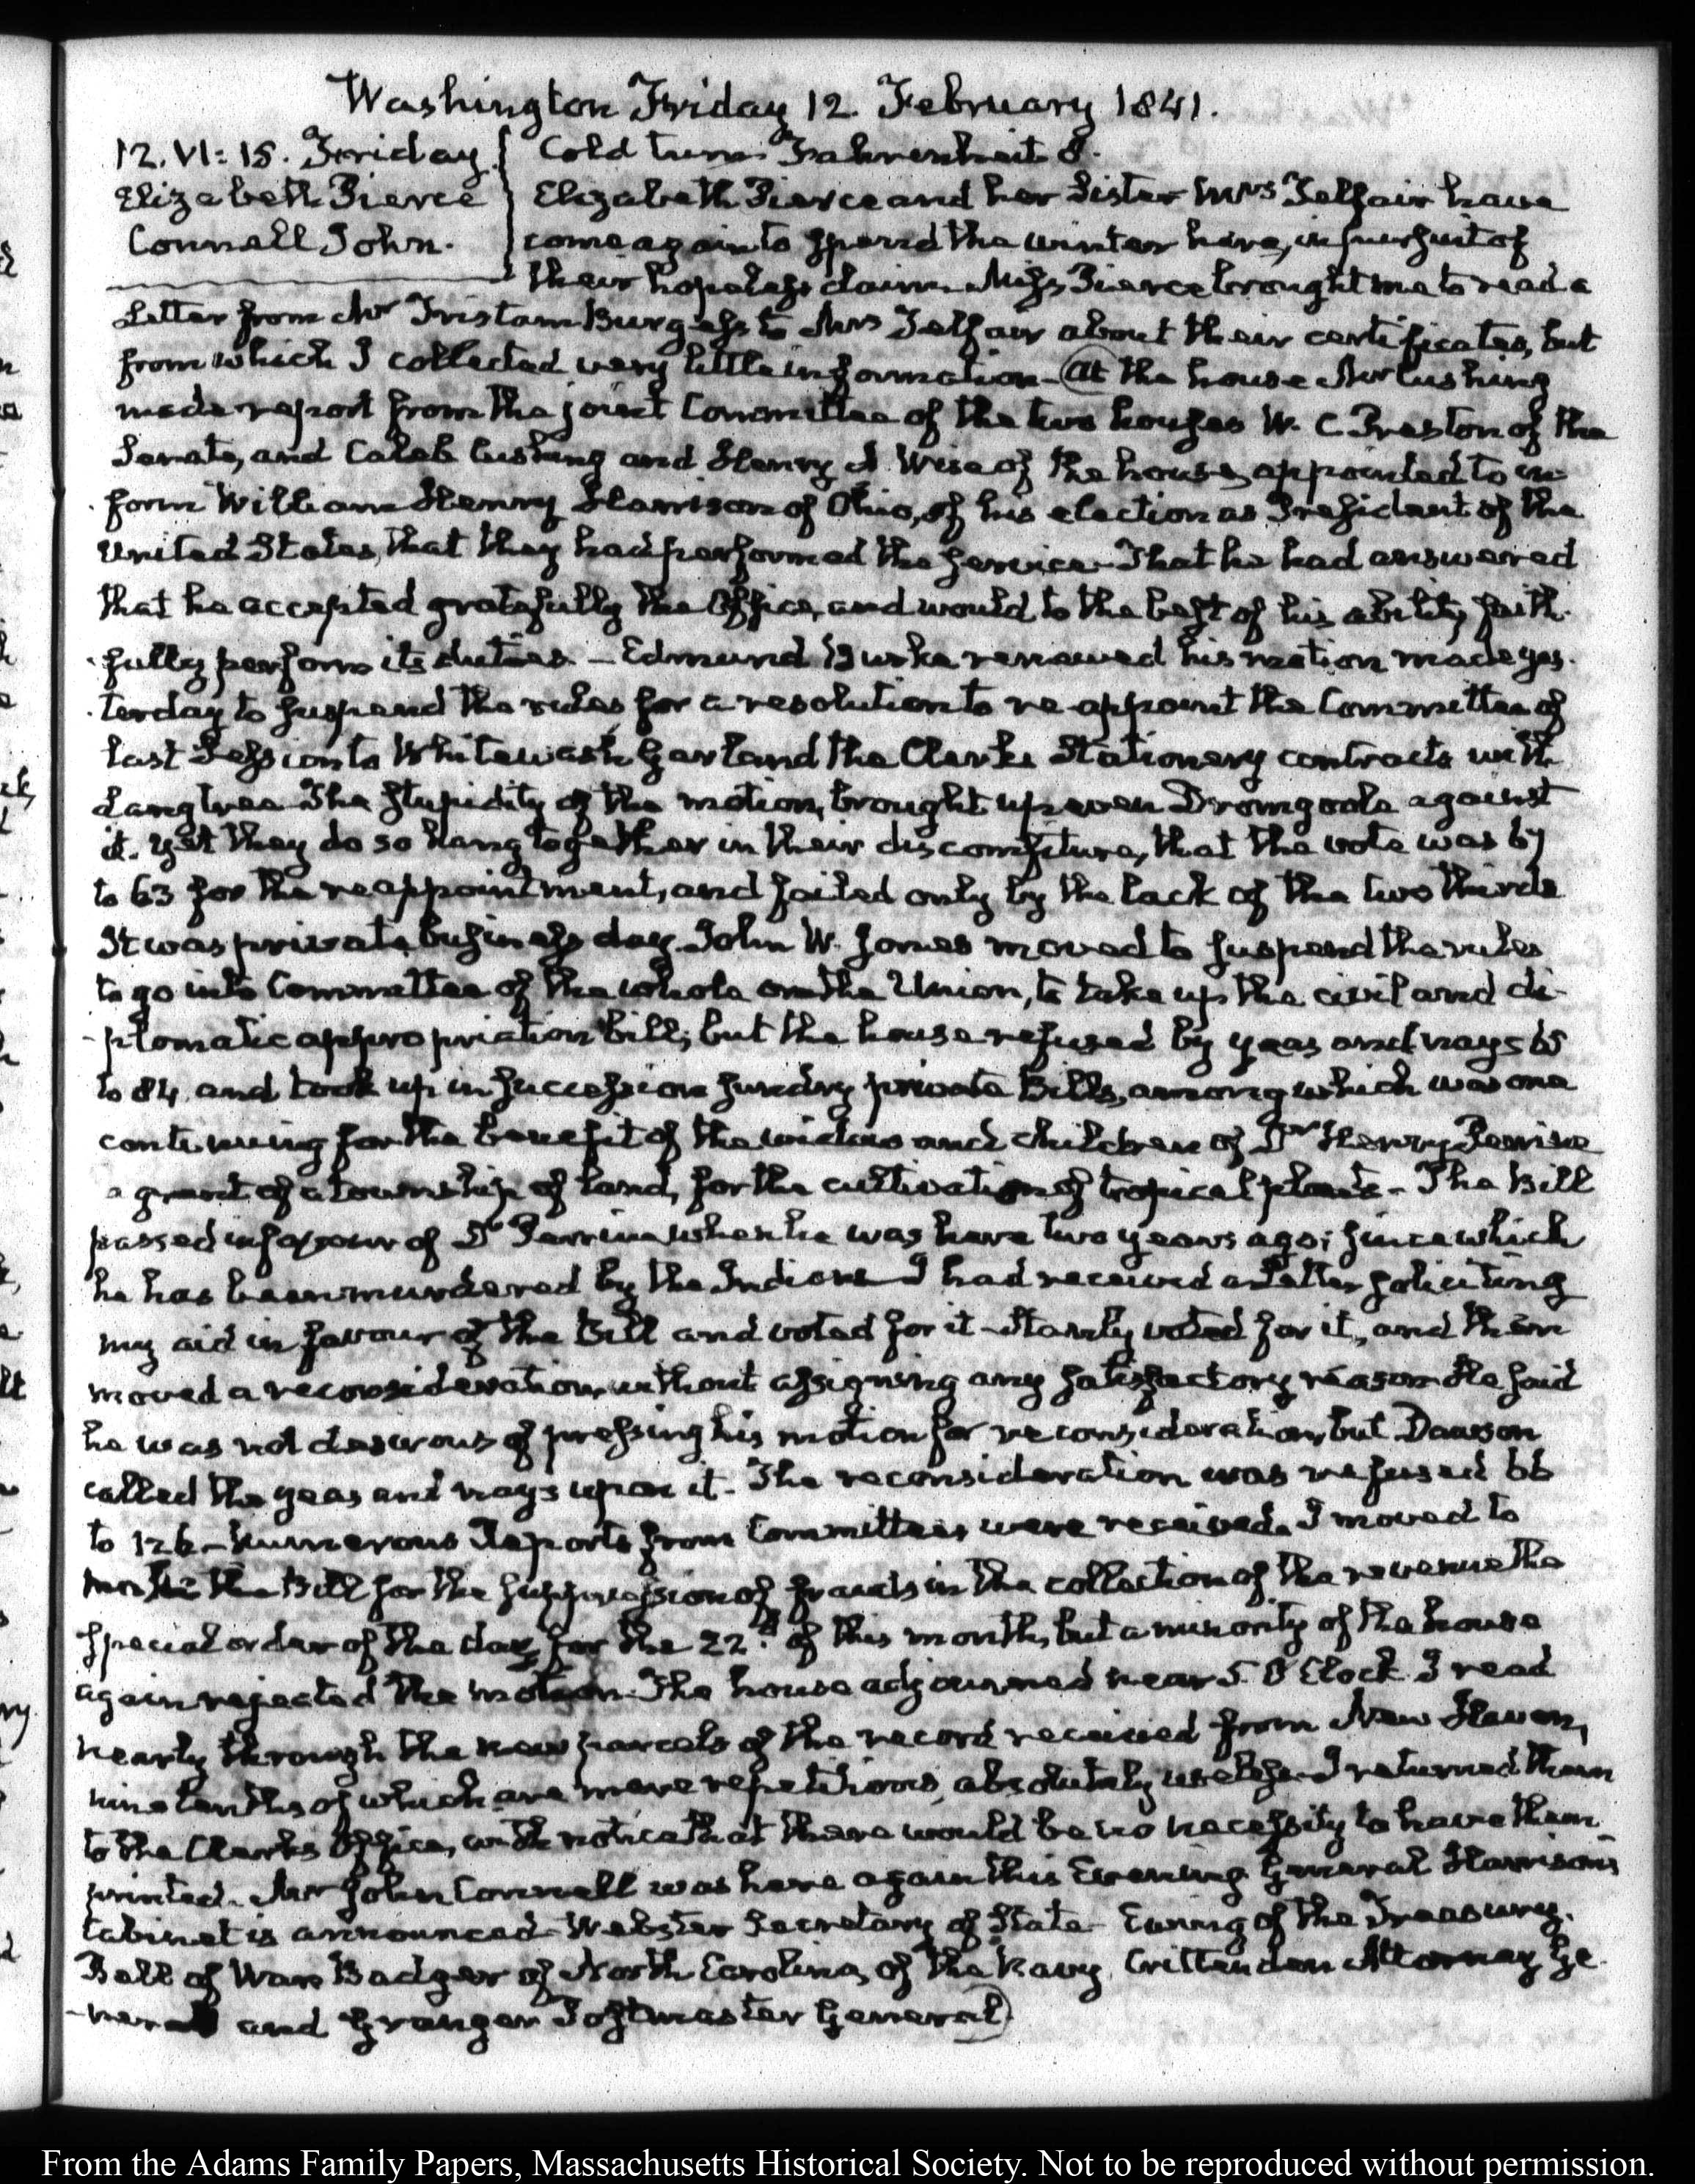 Washington Friday 12. February 1841.
12. VI: 15. Friday
Elizabeth Pierce
Connell John.
Cold turn. Fahrenheit 8.
Elizabeth Pierce and her Sister Mrs Telfair have
come again to spend the winter here, in pursuit of
their hopeless claim. Miss Pierce brought me to read a
Letter from Mr Tristam Burgess to Mrs Telfair about their certificates, but
from which I collected very little information – At the house Mr Cushing
made report from the joint Committee of the two houses W. C. Preston of the
Senate, and Caleb Cushing and Henry A. Wise of the house, appointed to in-
form William Henry Harrison of Ohio, of his election as President of the
United States, that they had performed the service – That he had answered
that he accepted gratefully the Office, and would to the best of his ability, faith-
-fully perform its duties – Edmund Burke renewed his motion made yes-
-terday to suspend the rules for a resolution to re-appoint the Committee of
last Session to Whitewash Garland the Clerk's Stationery contracts with
Langtree. The stupidity of the motion, brought up even Dromgoole against
it. Yet they do so hang together in their discomfiture, that the vote was 67
to 63 for the reappointment, and failed only by the lack of the two thirds
It was private business day. John W. Jones moved to suspend the rules
to go into Committee of the whole on the Union, to take up the civil and di-
-plomatic appropriation bill; but the house refused by yeas and nays 65
to 84. and took up in succession sundry private Bills, among which was one
continuing for the benefit of the widow and children of Dr Henry Perrine
a grant of a township of land, for the cultivation of tropical plants – The Bill
passed in favour of Dr Perrine when he was here two years ago; since which
he has been murdered by the Indians – I had received a Letter soliciting
my aid in favour of the Bill and voted for it – Stanly voted for it, and then
moved a reconsideration, without assigning any satisfactory reason. He said
he was not desirous of pressing his motion for reconsideration, but Dawson
called the yeas and nays upon it – The reconsideration was refused 66
to 126 – Numerous Reports from Committees were received. I moved to
make the Bill for the suppression of frauds in the collection of the revenue the
special order of the day, for the 22d. of this month, but a minority of the house
again rejected the motion. The house adjourned near 5. O'Clock. I read
nearly through the new parcels of the record received from New Haven,
nine tenths of which are mere repetitions, absolutely useless – I returned them
to the Clerks Office, with notice that there would be no necessity to have them
printed. Mr John Connell was here again this Evening. General Harrison's
Cabinet is announced – Webster Secretary of State – Ewing of the Treasury.
Bell of War Badger of North Carolina, of the Navy, Crittenden Attorney Ge-
-neral and Granger Postmaster General
From the Adams Family Papers, Massachusetts Historical Society. Not to be reproduced without permission.